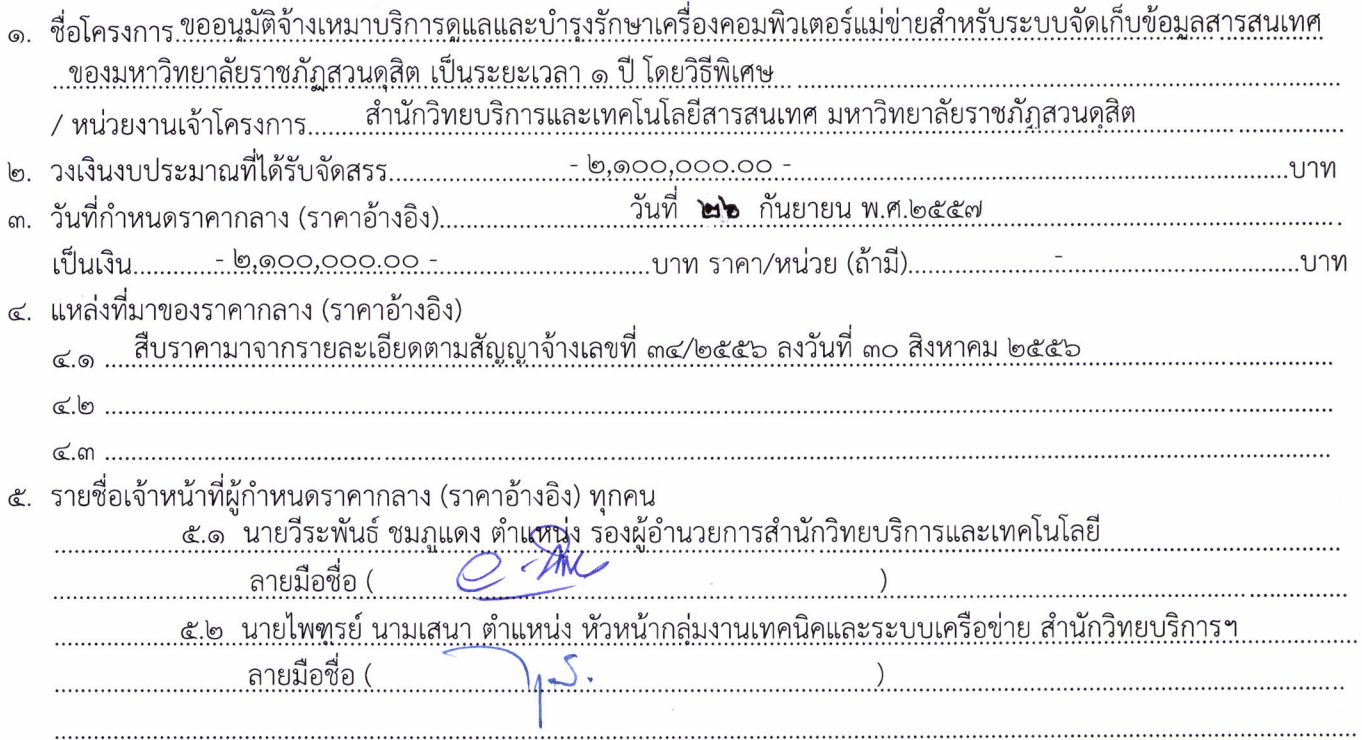 ๑. ชื่อโครงการ.ขออนุมัติจ้างเหมาบริการดูแลและบำรุงรักษาเครื่องคอมพิวเตอร์แม่ข่ายสำหรับระบบจัดเก็บข้อมูลสารสนเทศ
ของมหาวิทยาลัยราชภัฏสวนดุสิต เป็นระยะเวลา ๑ ปี โดยวิธีพิเศษ
/ หน่วยงานเจ้าโครงการ.........สำนักวิทยบริการและเทคโนโลยีสารสนเทศ มหาวิทยาลัยราชภัฏสวนดุสิต
๒. วงเงินงบประมาณที่ได้รับจัดสรร.........- ๒,๑๐๐,๐๐๐.๐๐ -.........บาท
๓. วันที่กำหนดราคากลาง (ราคาอ้างอิง).........วันที่ ๒๖ กันยายน พ.ศ.๒๕๕๗
เป็นเงิน.........- ๒,๑๐๐,๐๐๐.๐๐ -.........บาท ราคา/หน่วย (ถ้ามี).........-.........บาท
๔. แหล่งที่มาของราคากลาง (ราคาอ้างอิง)
๔.๑ สืบราคามาจากรายละเอียดตามสัญญาจ้างเลขที่ ๓๔/๒๕๕๖ ลงวันที่ ๓๐ สิงหาคม ๒๕๕๖
๔.๒ .........
๔.๓ .........
๕. รายชื่อเจ้าหน้าที่ผู้กำหนดราคากลาง (ราคาอ้างอิง) ทุกคน
๕.๑ นายวีระพันธ์ ชมภูแดง ตำแหน่ง รองผู้อำนวยการสำนักวิทยบริการและเทคโนโลยี
ลายมือชื่อ ( )
๕.๒ นายไพฑูรย์ นามเสนา ตำแหน่ง หัวหน้ากลุ่มงานเทคนิคและระบบเครือข่าย สำนักวิทยบริการฯ
ลายมือชื่อ ( )